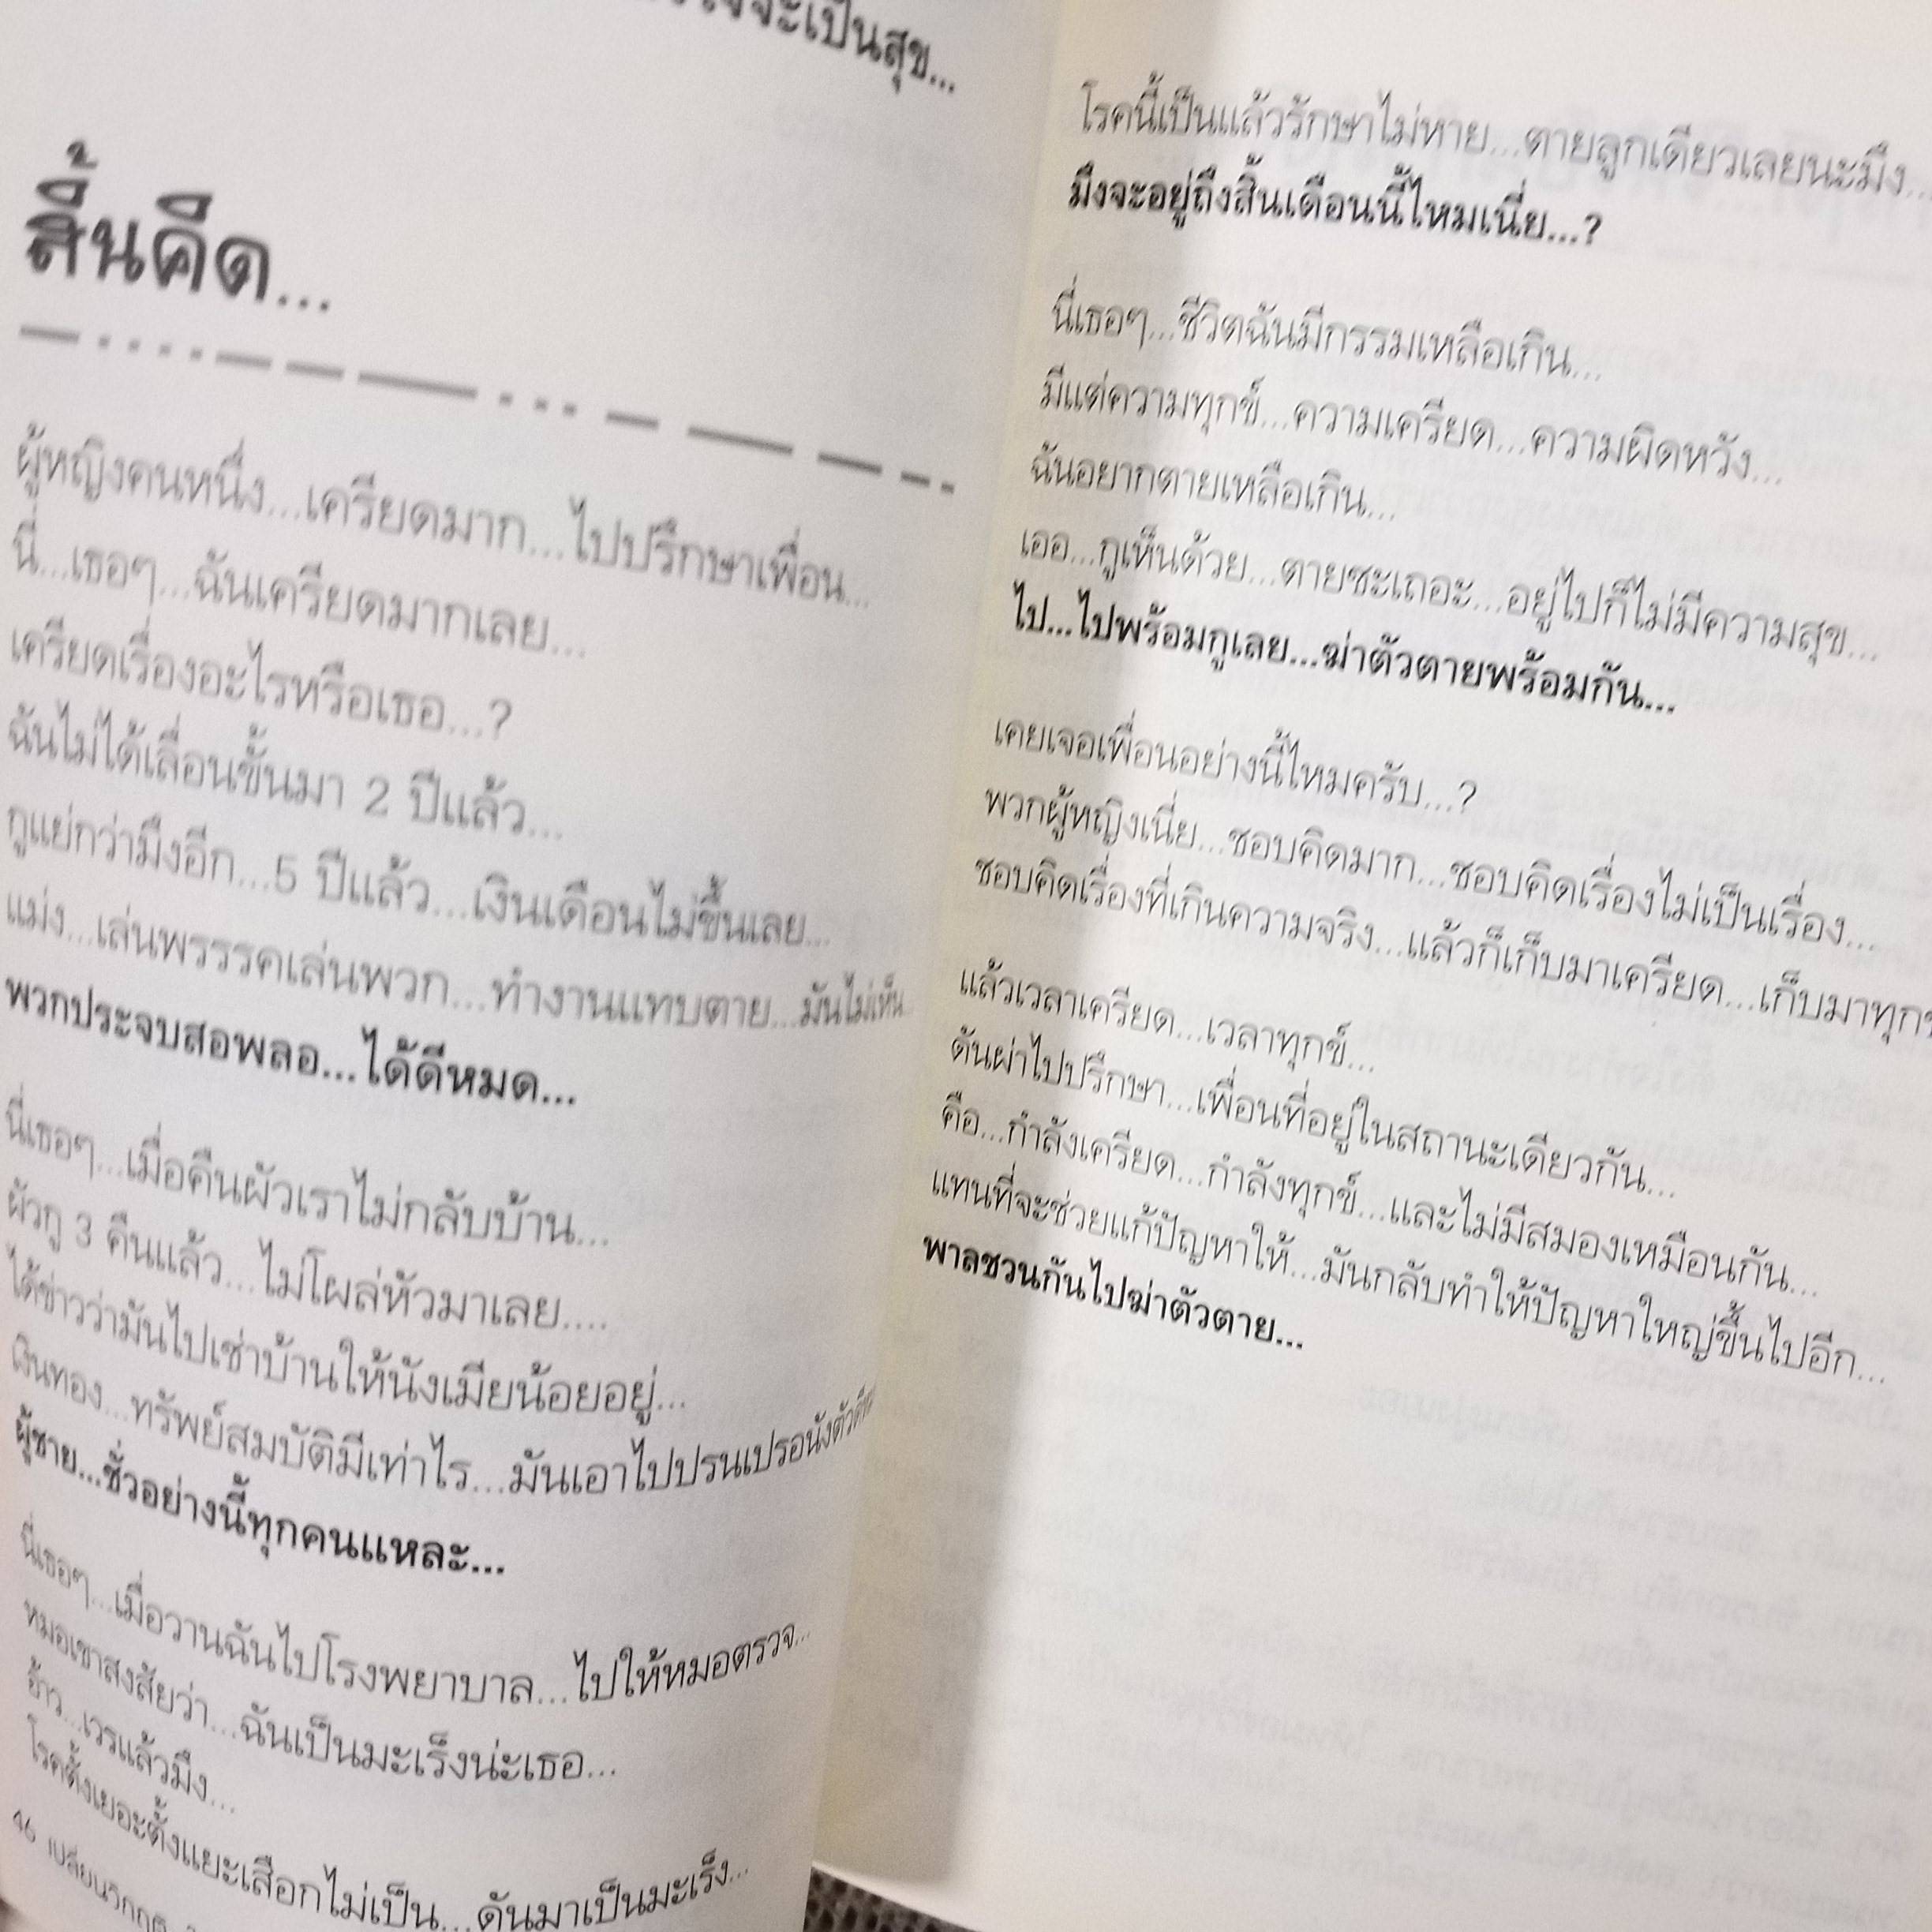 จะเป็นสุข...
สิ้นคิด...
ผู้หญิงคนหนึ่ง...เครียดมาก...ไปปรึกษาเพื่อน...
นี่...เธอๆ...ฉันเครียดมากเลย...
เครียดเรื่องอะไรหรือเธอ...?
ฉันไม่ได้เลื่อนขั้นมา 2 ปีแล้ว...
กูแย่กว่ามึงอีก...5 ปีแล้ว...เงินเดือนไม่ขึ้นเลย...
แม่ง...เล่นพรรรคเล่นพวก...ทำงานแทบตาย...มันไม่เห็น...
พวกประจบสอพลอ...ได้ดีหมด...
นี่เธอๆ...เมื่อคืนผัวเราไม่กลับบ้าน...
ผัวกู 3 คืนแล้ว...ไม่โผล่หัวมาเลย....
ได้ข่าวว่ามันไปเช่าบ้านให้นังเมียน้อยอยู่...
เงินทอง...ทรัพย์สมบัติมีเท่าไร...มันเอาไปปรนเปรอนังตัวดี
ผู้ชาย...ชั่วอย่างนี้ทุกคนแหละ...
นี่เธอๆ...เมื่อวานฉันไปโรงพยาบาล...ไปให้หมอตรวจ...
หมอเขาสงสัยว่า...ฉันเป็นมะเร็งน่ะเธอ...
อ้าว...เวรแล้วมึง...
โรคตั้งเยอะตั้งแยะเสือกไม่เป็น...ดันมาเป็นมะเร็ง...
46 เปลี่ยนวิกฤติ
โรคนี้เป็นแล้วรักษาไม่หาย...ตายลูกเดียวเลยนะมึง...
มึงจะอยู่ถึงสิ้นเดือนนี้ไหมเนี่ย...?
นี่เธอๆ...ชีวิตฉันมีกรรมเหลือเกิน...
มีแต่ความทุกข์...ความเครียด...ความผิดหวัง...
ฉันอยากตายเหลือเกิน...
เออ...กูเห็นด้วย...ตายซะเถอะ...อยู่ไปก็ไม่มีความสุข...
ไป...ไปพร้อมกูเลย...ฆ่าตัวตายพร้อมกัน...
เคยเจอเพื่อนอย่างนี้ไหมครับ...?
พวกผู้หญิงเนี่ย...ชอบคิดมาก...ชอบคิดเรื่องไม่เป็นเรื่อง...
ชอบคิดเรื่องที่เกินความจริง...แล้วก็เก็บมาเครียด...เก็บมาทุกข์
แล้วเวลาเครียด...เวลาทุกข์...
ดันผ่าไปปรึกษา...เพื่อนที่อยู่ในสถานะเดียวกัน...
คือ...กำลังเครียด...กำลังทุกข์...และไม่มีสมองเหมือนกัน...
แทนที่จะช่วยแก้ปัญหาให้...มันกลับทำให้ปัญหาใหญ่ขึ้นไปอีก...
พาลชวนกันไปฆ่าตัวตาย...